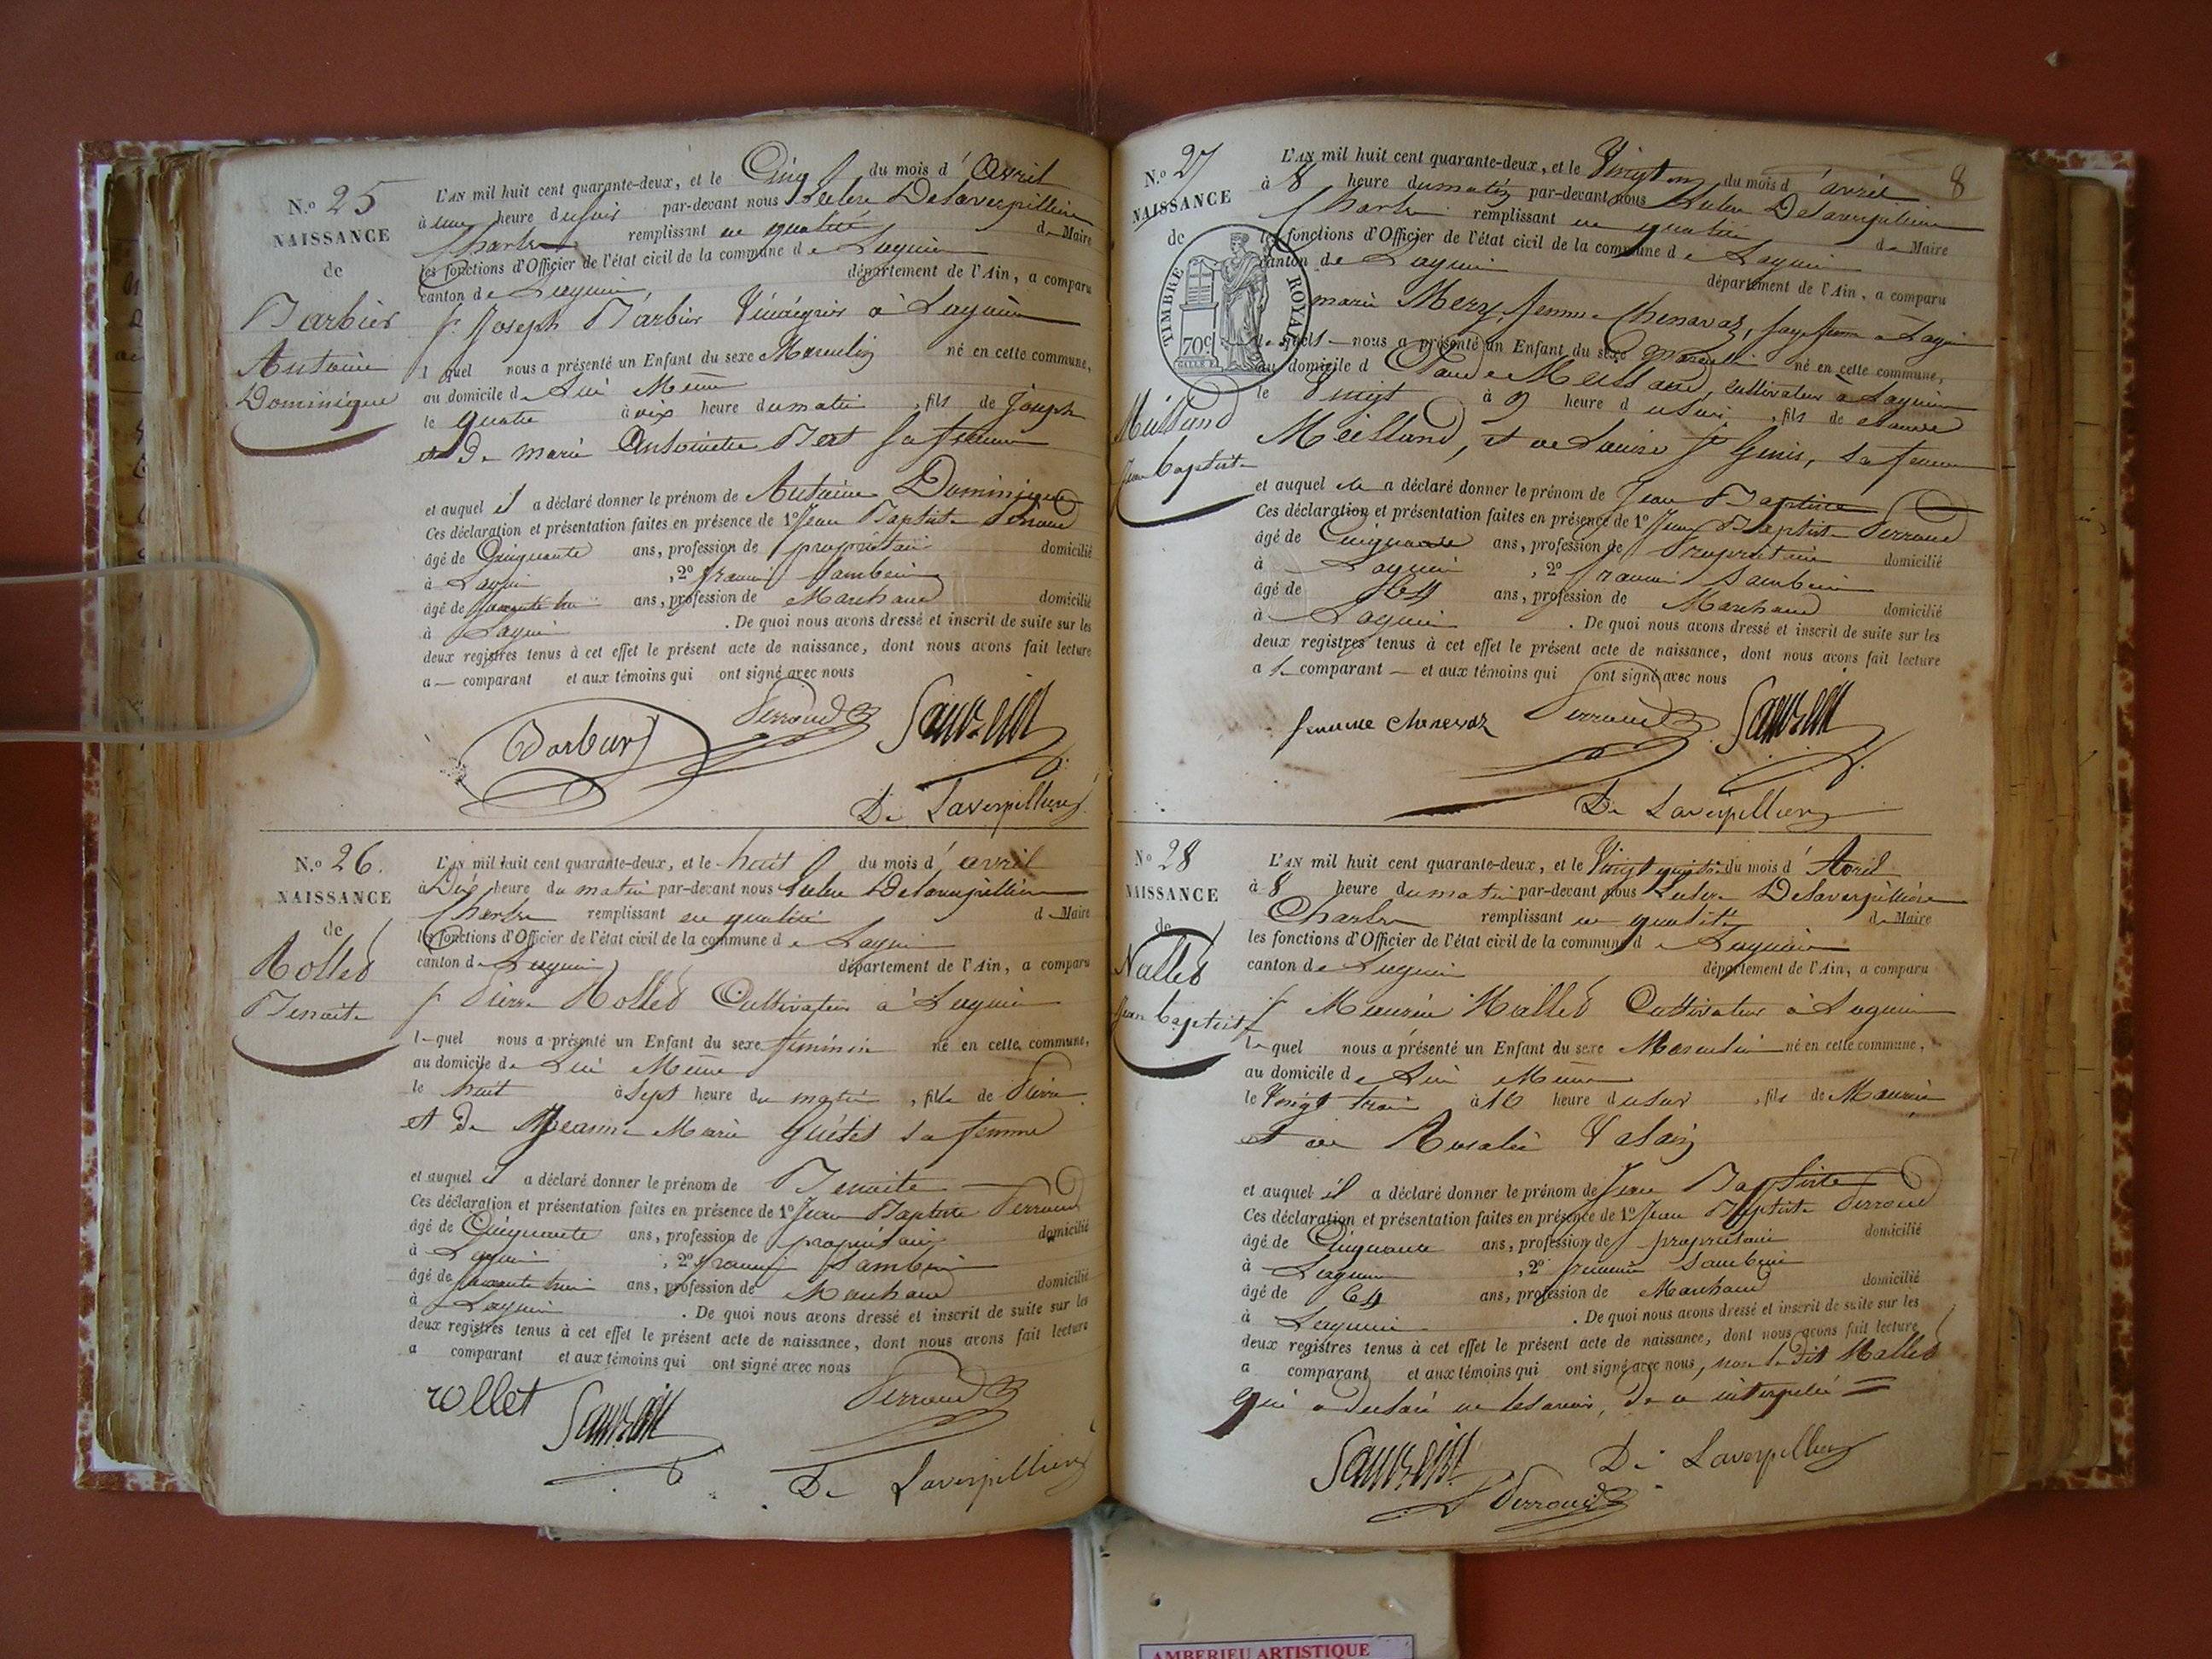 N.º 25
NAISSANCE
de
Barbier
Antoine
Dominique
L'AN mil huit cent quarante-deux, et le Cinq du mois d'Avril
à une heure du soir par-devant nous Delaverpillière
Charles remplissant en qualité de Maire
les fonctions d'Officier de l'état civil de la commune de Lagnieu
canton de Lagnieu, département de l'Ain, a comparu
Joseph Barbier à Lagnieu
lequel nous a présenté un Enfant du sexe Masculin né en cette commune,
au domicile de Lui Même
le quatre à dix heure du matin, fils de Joseph
et de Marie Antoinette sa femme
et auquel il a déclaré donner le prénom de Antoine Dominique
Ces déclaration et présentation faites en présence de 1º Jean Baptiste Perroud
âgé de Cinquante ans, profession de propriétaire domicilié
à Lagnieu, 2º Sambein
âgé de ans, profession de Marchand domicilié
à Lagnieu. De quoi nous avons dressé et inscrit de suite sur les
deux registres tenus à cet effet le présent acte de naissance, dont nous avons fait lecture
a comparant et aux témoins qui ont signé avec nous
Barbier Perroud
De Laverpilliere
N.º 26.
NAISSANCE
de
Rollet
Benoite
L'AN mil huit cent quarante-deux, et le huit du mois d'avril
à Dix heure du matin par-devant nous Delaverpillière
Charles remplissant en qualité de Maire
les fonctions d'Officier de l'état civil de la commune de Lagnieu
canton de Lagnieu département de l'Ain, a comparu
Pierre Rollet Cultivateur à Lagnieu
lequel nous a présenté un Enfant du sexe féminin né en cette commune,
au domicile de Lui Même
le huit à Sept heure du matin, fille de Pierre
et de Jeanne Marie sa femme
et auquel il a déclaré donner le prénom de Benoite
Ces déclaration et présentation faites en présence de 1º Jean Baptiste Perroud
âgé de Cinquante ans, profession de propriétaire domicilié
à Lagnieu, 2º Sambein
âgé de ans, profession de Marchand domicilié
à Lagnieu. De quoi nous avons dressé et inscrit de suite sur les
deux registres tenus à cet effet le présent acte de naissance, dont nous avons fait lecture
a comparant et aux témoins qui ont signé avec nous
rollet Perroud
De Laverpilliere
8
N.º 27
NAISSANCE
de
TIMBRE ROYAL
70c
Jean baptiste
L'AN mil huit cent quarante-deux, et le Vingt un du mois d'avril
à 8 heure du matin par-devant nous Delaverpillière
Charles remplissant en qualité de Maire
les fonctions d'Officier de l'état civil de la commune de Lagnieu
canton de Lagnieu département de l'Ain, a comparu
marie Mery, femme Chenavaz, sage femme a Lagnieu
nous a présenté un Enfant du sexe masculin né en cette commune,
au domicile de Claude Meilland, cultivateur à Lagnieu
le Vingt à 9 heure du soir, fils de Claude
Meilland, et de Louise St Genis, sa femme
et auquel elle a déclaré donner le prénom de Jean Baptiste
Ces déclaration et présentation faites en présence de 1º Jean Baptiste Perroud
âgé de Cinquante ans, profession de Propriétaire domicilié
à Lagnieu, 2º Sambein
âgé de ans, profession de Marchand domicilié
à Lagnieu. De quoi nous avons dressé et inscrit de suite sur les
deux registres tenus à cet effet le présent acte de naissance, dont nous avons fait lecture
a la comparant et aux témoins qui ont signé avec nous
femme chenevaz Perroud
De Laverpilliere
Nº 28
NAISSANCE
de
Nallet
Jean baptiste
L'AN mil huit cent quarante-deux, et le Vingt quatre du mois d'Avril
à 8 heure du matin par-devant nous Delaverpillière
Charles remplissant en qualité de Maire
les fonctions d'Officier de l'état civil de la commune de Lagnieu
canton de Lagnieu département de l'Ain, a comparu
Maurice Nallet Cultivateur à Lagnieu
lequel nous a présenté un Enfant du sexe Masculin né en cette commune,
au domicile de Lui Même
le Vingt trois à 10 heure du soir, fils de Maurice
et de Rosalie
et auquel il a déclaré donner le prénom de Jean Baptiste
Ces déclaration et présentation faites en présence de 1º Jean Baptiste Perroud
âgé de Cinquante ans, profession de propriétaire domicilié
à Lagnieu, 2º Sambein
âgé de ans, profession de Marchand domicilié
à Lagnieu. De quoi nous avons dressé et inscrit de suite sur les
deux registres tenus à cet effet le présent acte de naissance, dont nous avons fait lecture
a comparant et aux témoins qui ont signé avec nous, non le dit Nallet
qui a déclaré ne le savoir, de ce interpellé
De Laverpilliere
Perroud
AMBERIEU ARTISTIQUE